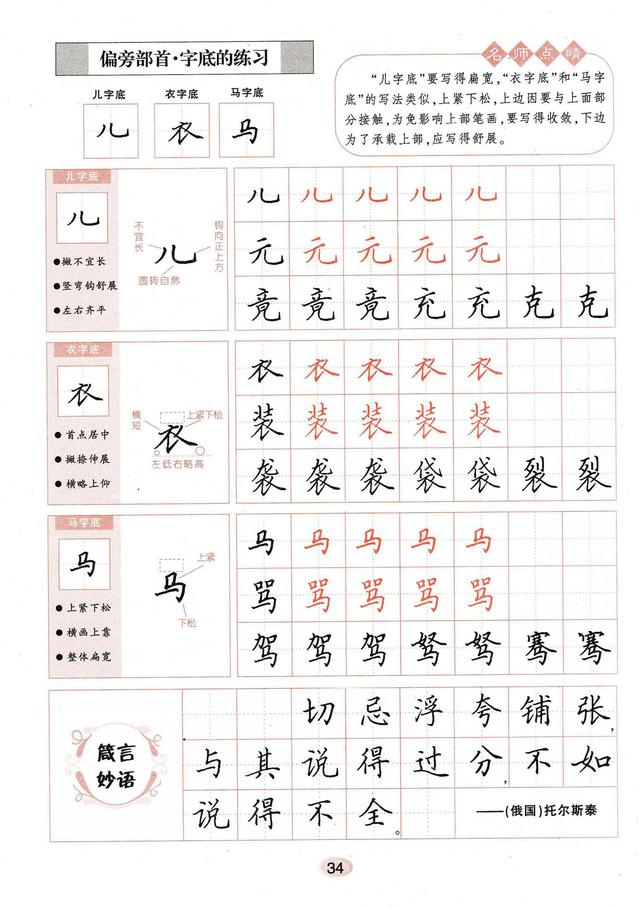 偏旁部首·字底的练习
名师点睛
“儿字底”要写得扁宽，“衣字底”和“马字
底”的写法类似，上紧下松，上边因要与上面部
分接触，为免影响上部笔画，要写得收敛，下边
为了承载上部，应写得舒展。
儿字底 衣字底 马字底
儿 衣 马
儿字底
儿
●撇不宜长
●竖弯钩舒展
●左右齐平
不宜长
钩向正上方
儿
圆转自然
儿 儿 儿 儿 儿
元 元 元 元 元
竟 竟 竟 充 充 克 克
衣字底
衣
●首点居中
●撇捺伸展
●横略上仰
横短
上紧下松
衣
左低右略高
衣 衣 衣 衣 衣
装 装 装 装 装
袭 袭 袭 袋 袋 裂 裂
马字底
马
●上紧下松
●横画上靠
●整体扁宽
上紧
马
下松
马 马 马 马 马
骂 骂 骂 骂 骂
驾 驾 驾 驽 驽 骞 骞
箴言
妙语
切忌浮夸铺张，
与其说得过分，不如
说得不全。
——(俄国)托尔斯泰
34